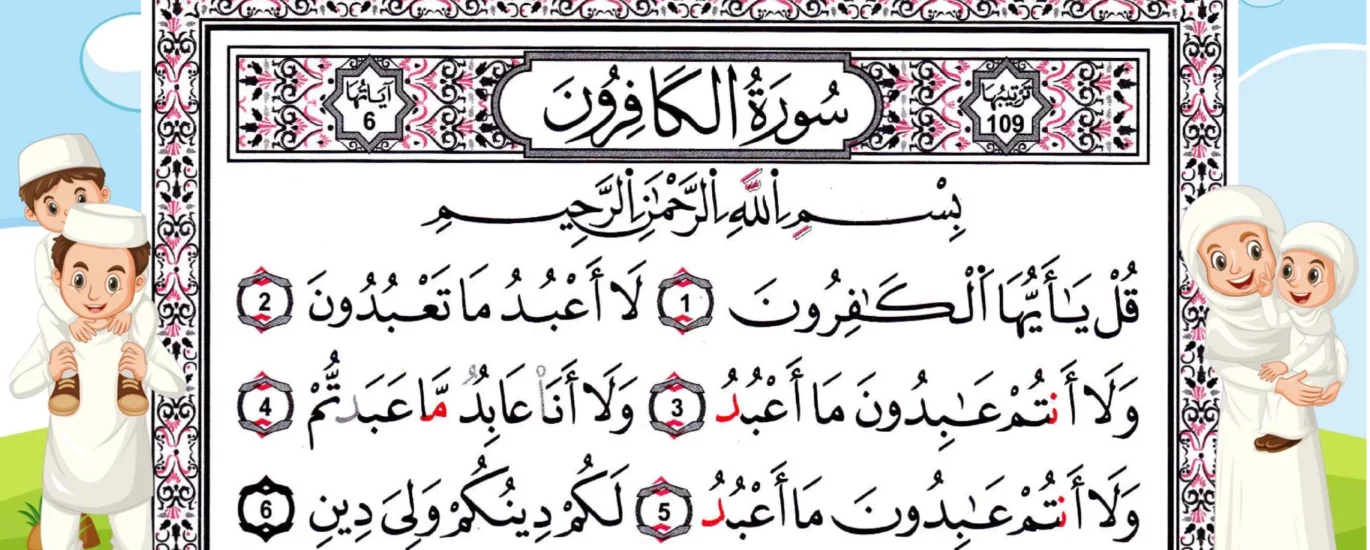 ترتيبها 109
سُورَةُ الكَافِرُونَ
آيَاتُهَا 6
بِسْمِ اِللَّهِ اِلرَّحْمَٰنِ اِلرَّحِيمِ
قُلْ يَٰأَيُّهَا اَلْكَٰفِرُونَ 1 لَا أَعْبُدُ مَا تَعْبُدُونَ 2
وَلَا أَنتُمْ عَٰبِدُونَ مَا أَعْبُدُ 3 وَلَا أَنَا عَابِدٌ مَّا عَبَدتُّمْ 4
وَلَا أَنتُمْ عَٰبِدُونَ مَا أَعْبُدُ 5 لَكُمْ دِينُكُمْ وَلِىَ دِينِ 6